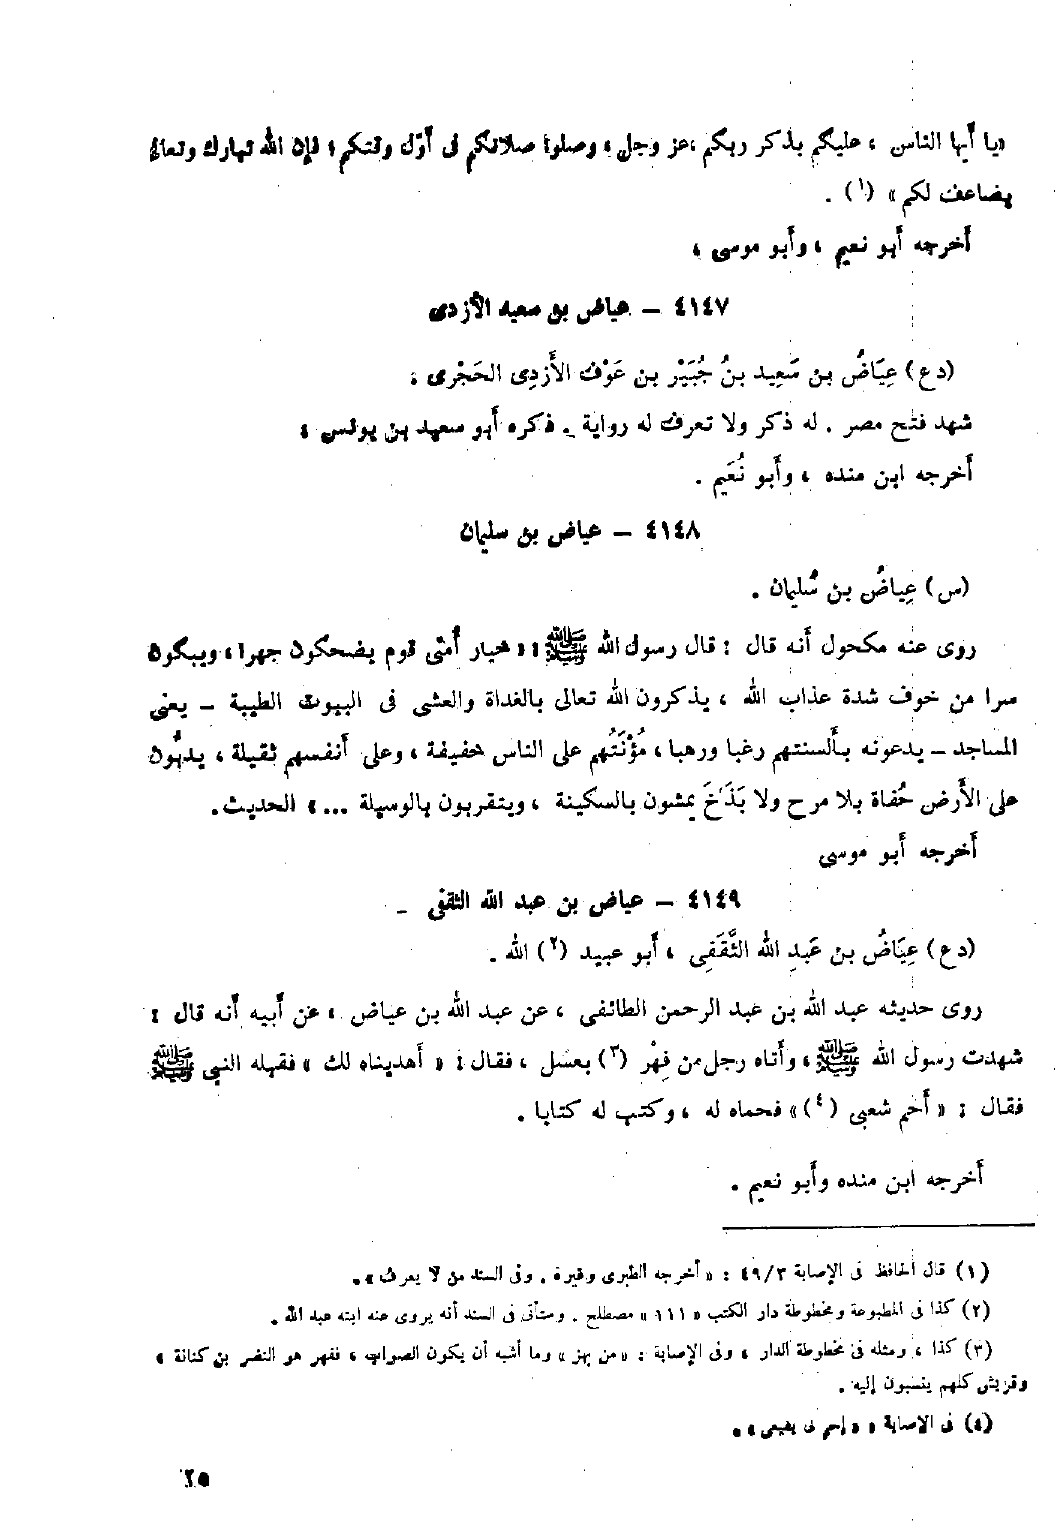 «يا أيها الناس ، عليكم بذكر ربكم ،عز وجل ، وصلوا صلاتكم فى أوّل وقتكم ؛ فإن الله تبارك وتعالى
يضاعف لكم » (١) .
أخرجه أبو نعيم ، وأبو موسى ،
٤١٤٧ – عياض بن سعيد الأزدى
(دع) عِيَاضُ بن سَعِيد بنُ جُبَيْر بن عَوْف الأَزدِى الحَجْرى .
شهد فتح مصر . له ذكر ولا تعرف له رواية . ذكره أبو سعيد بن يونس .
أخرجه ابن منده ، وأبو نُعَيم .
٤١٤٨ – عياض بن سليمان
(س) عِياضُ بن سُليمان .
روى عنه مكحول أنه قال : قال رسول الله ﷺ : « خيار أمتى قوم يضحكون جهرا ، ويبكون
سرا من خوف شدة عذاب الله ، يذكرون الله تعالى بالغداة والعشى فى البيوت الطيبة – يعنى
المساجد – يدعونه بألسنتهم رغبا ورهبا ، مُؤْنَتُهم على الناس خفيفة ، وعلى أنفسهم ثقيلة ، يدبُّون
على الأرض حُفاة بلا مرح ولا بَذَخَ يمشون بالسكينة ، ويتقربون بالوسيلة ... » الحديث.
أخرجه أبو موسى
٤١٤٩ – عياض بن عبد الله الثقفى –
(دع) عِيَاضُ بن عَبدِ الله الثَّقَفِى ، أبو عبيد (٢) الله .
روى حديثه عبد الله بن عبد الرحمن الطائفى ، عن عبد الله بن عياض ، عن أبيه أنه قال :
شهدت رسول الله ﷺ ، وأتاه رجل من فِهْر (٣) بعسل ، فقال : « أهديناه لك » فقبله النبى ﷺ
فقال : « أحم شعبى (٤) » فحماه له ، وكتب له كتابا .
أخرجه ابن منده وأبو نعيم .
(١) قال الحافظ فى الإصابة ٤٩/٣ : « أخرجه الطبرى وغيره . وفى السند من لا يعرف » .
(٢) كذا فى المطبوعة ومخطوطة دار الكتب « ١١١ » مصطلح . وستأتى فى السند أنه يروى عنه ابنه عبد الله .
(٣) كذا ، ومثله فى مخطوطة الدار ، وفى الإصابة : « من بهز » وما أشبه أن يكون الصواب ، ففهر هو النضر بن كنانة ،
وقريش كلهم ينسبون إليه .
(٤) فى الإصابة « إحم لى
٢٥